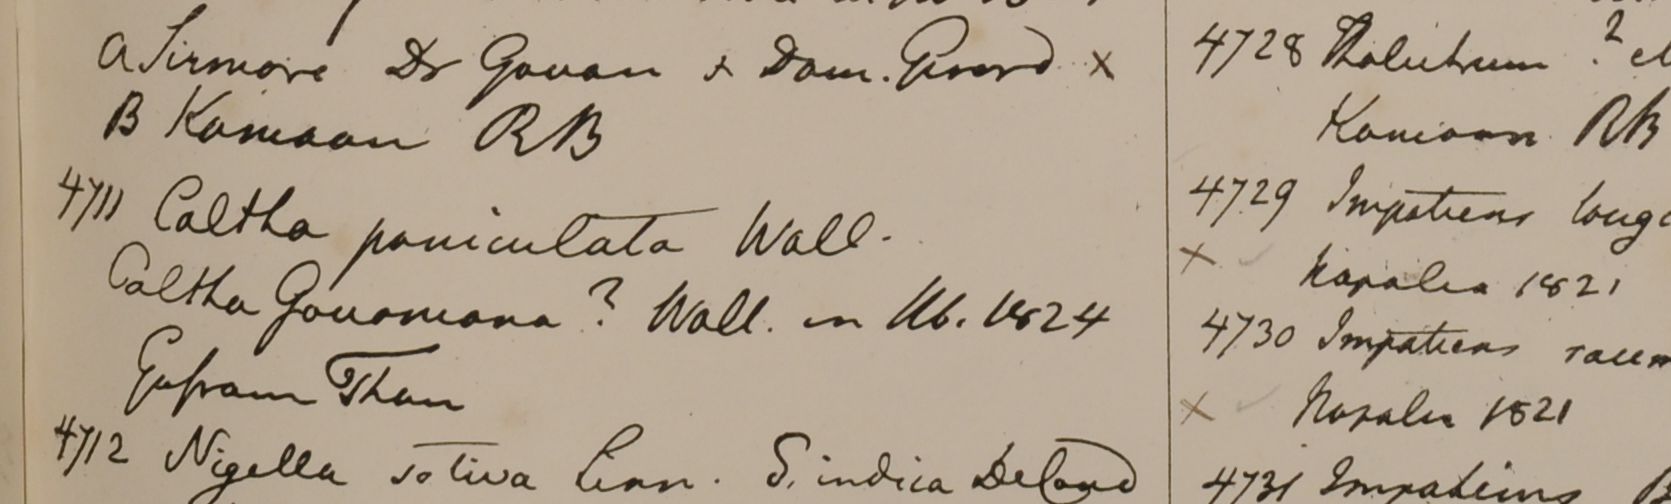 a Sirmore Dr Govan & Dom. Gerard x
B Kamaon RB
4711 Caltha paniculata Wall.
Caltha Govaniana? Wall. in Hb. 1824
Than
4712 Nigella sativa Linn. S. indica
4728 Thalictrum ?
Kamaon RB
4729 Impatiens long
x Napalia 1821
4730 Impatiens racem
x Napalia 1821
4731 Impatiens